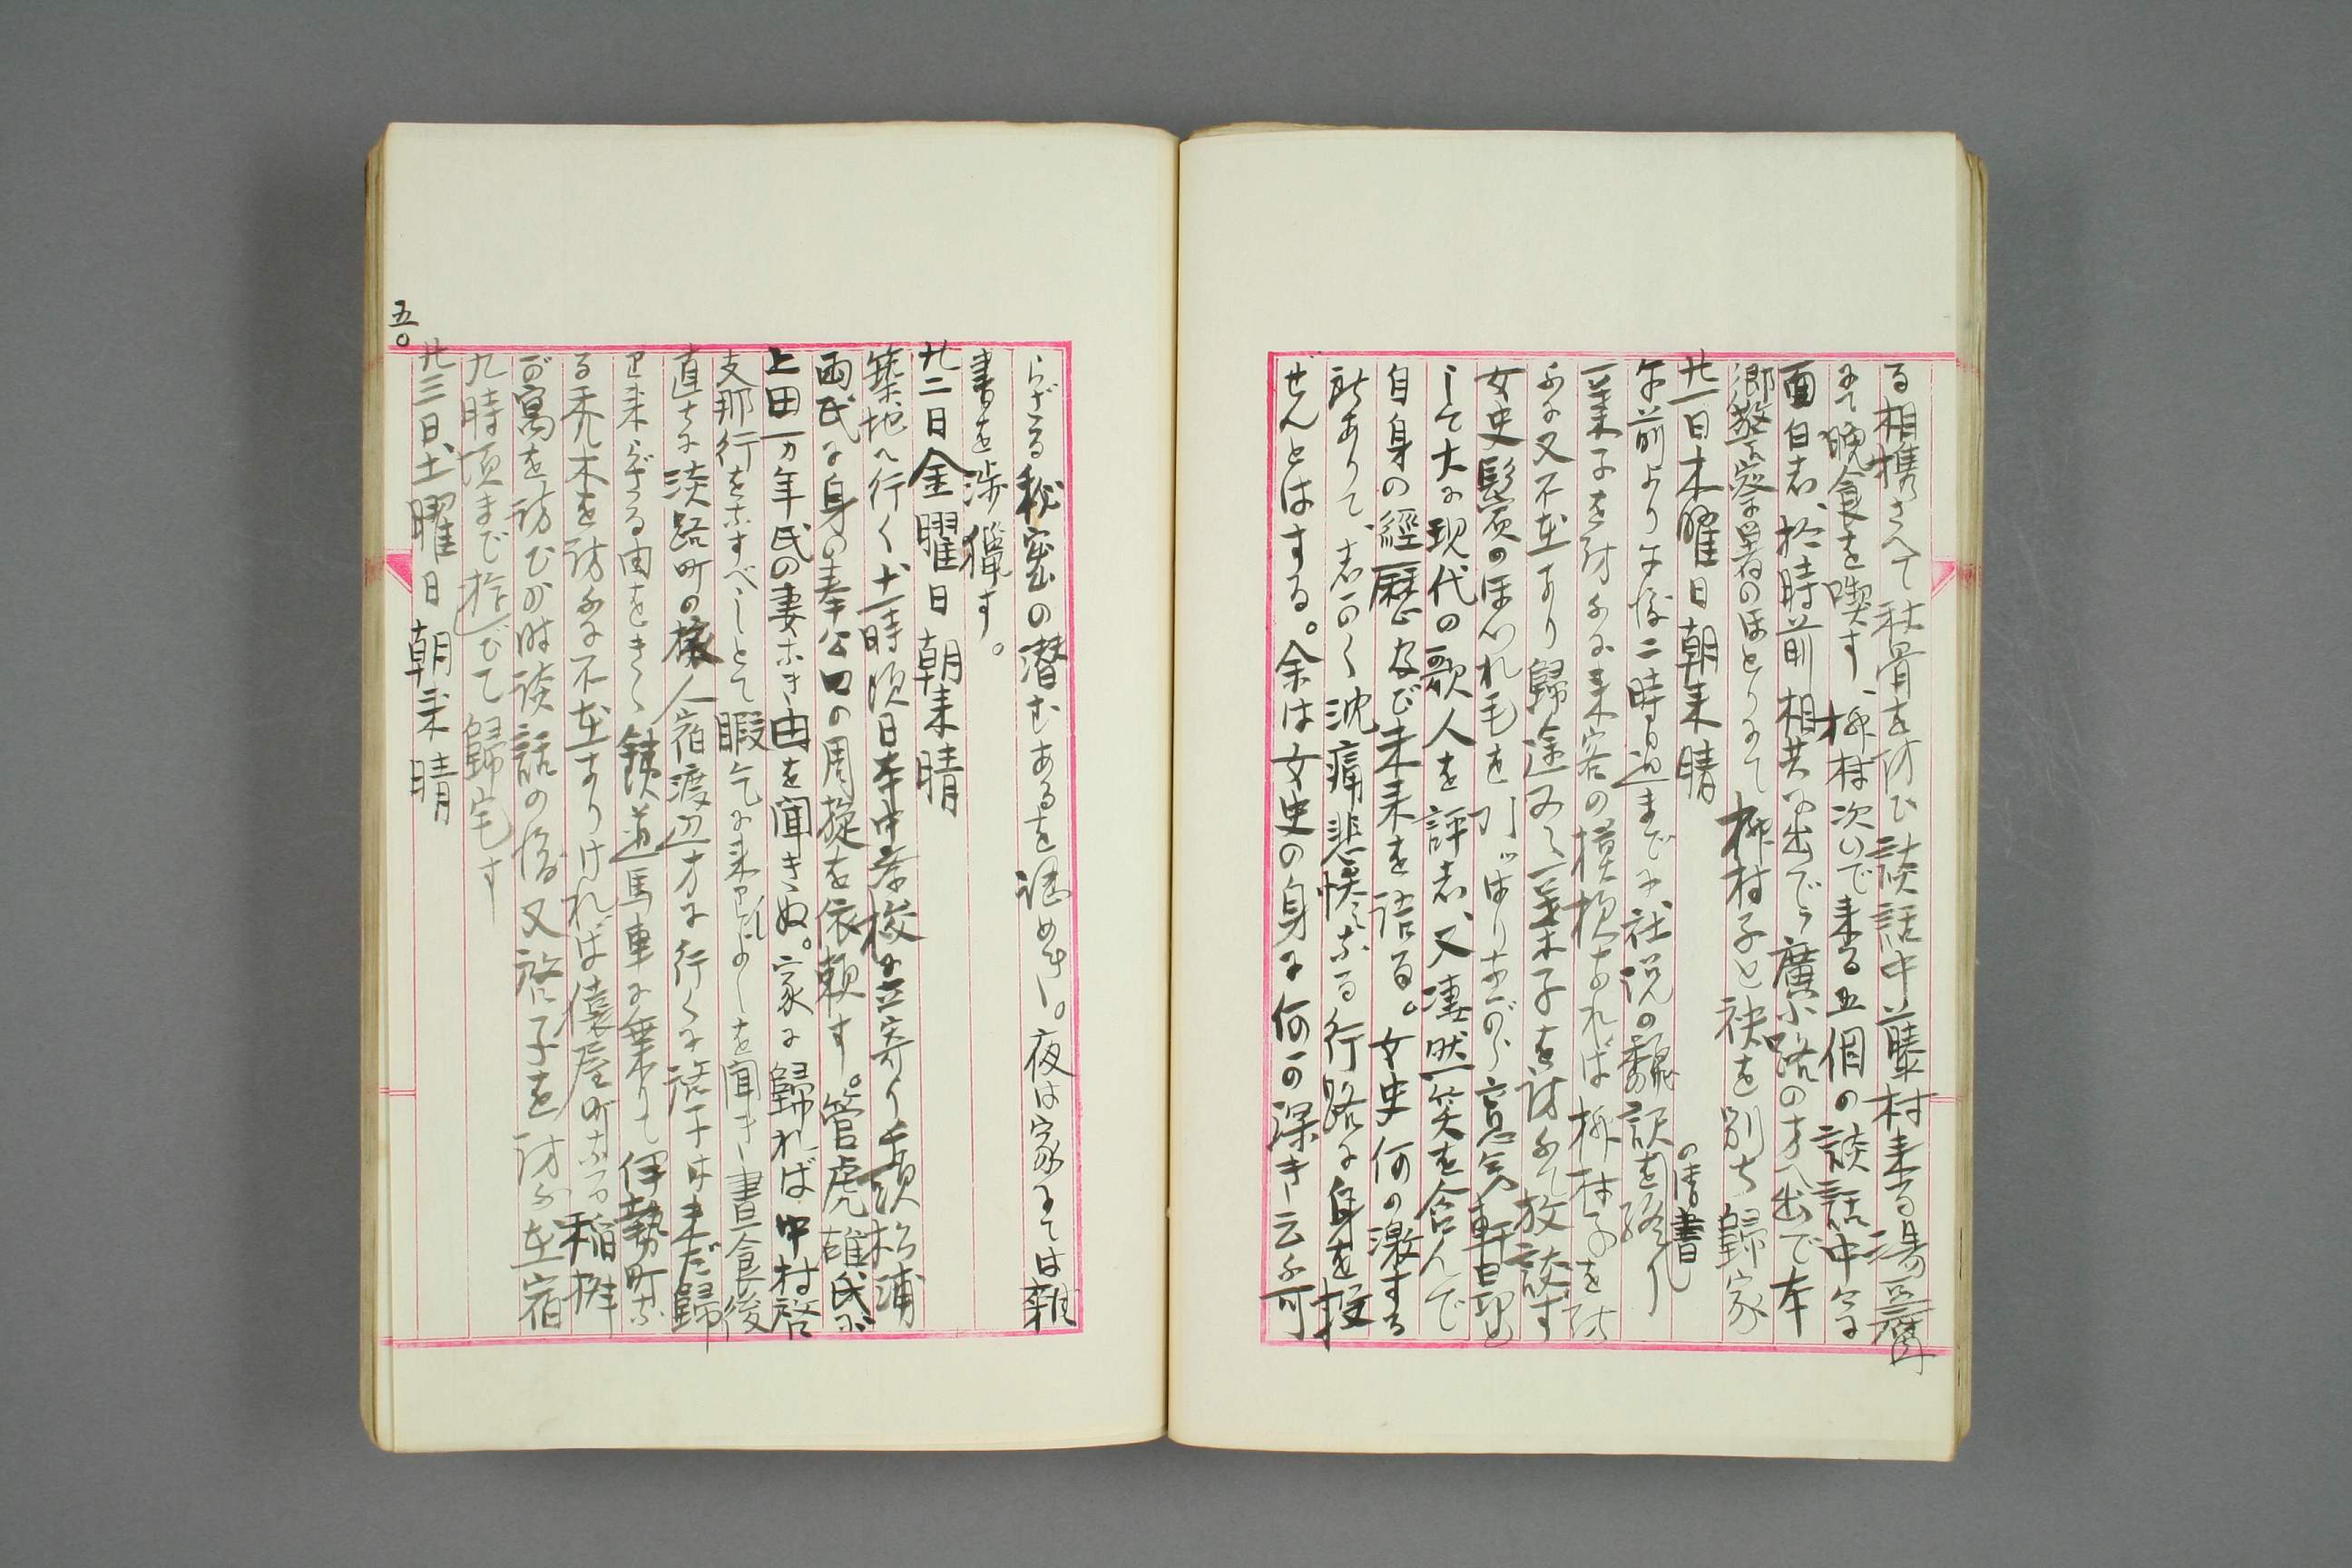 る相携さへて秋骨を訪ひ談話中藤村来る湯豆腐
にて晩食を喫す、柳村次いで来る五個の談話中々に
面白し、拾時前相共に出でゝ廣小路の方へ出で本
郷警察署のほとりにて柳村子と袂を別ち歸家
廿一日木曜日朝来晴
午前より午後二時過までに社説の飜訳を終り
の清書
一葉子を訪ふに来客の模様なれば柳村子を訪
ふに又不在なり歸途又々一葉子を訪ふて放談す
女史鬢のほつれ毛を引ツぱりながら意気軒昂と
して大に現代の歌人を評し、又凄然笑を含んで
自身の經歴及び未来を語る。女史何の激する
所ありて、しかく沈痛悲惨なる行路に身を投
ぜんとはする。余は女史の身に何か深き云ふ可
らざる秘密の潜むあるを認めき。夜は家にては雜
書を渉獵す。
廿二日金曜日朝来晴
築地へ行く、十一時頃日本中学校に立寄り千頭松浦
両氏に身の奉公口の周旋を依頼す。菅虎雄氏が
上田万年氏の妻なき由を聞きぬ。家に歸れば中村啓
支那行をなすべしとて暇乞に来りしよしを聞き晝食後
直ちに淡路町の 人宿渡辺方に行くに啓子は未だ歸
り来らざる由をきく鉄道馬車に乗りて伊勢町な
る禿木を訪ふに不在なりければ 屋町なる稲舟
が寓を訪ひ少時談話の後又啓子を訪ふ在宿
九時頃まで遊びて歸宅す
廿三日、土曜日朝来晴
五〇